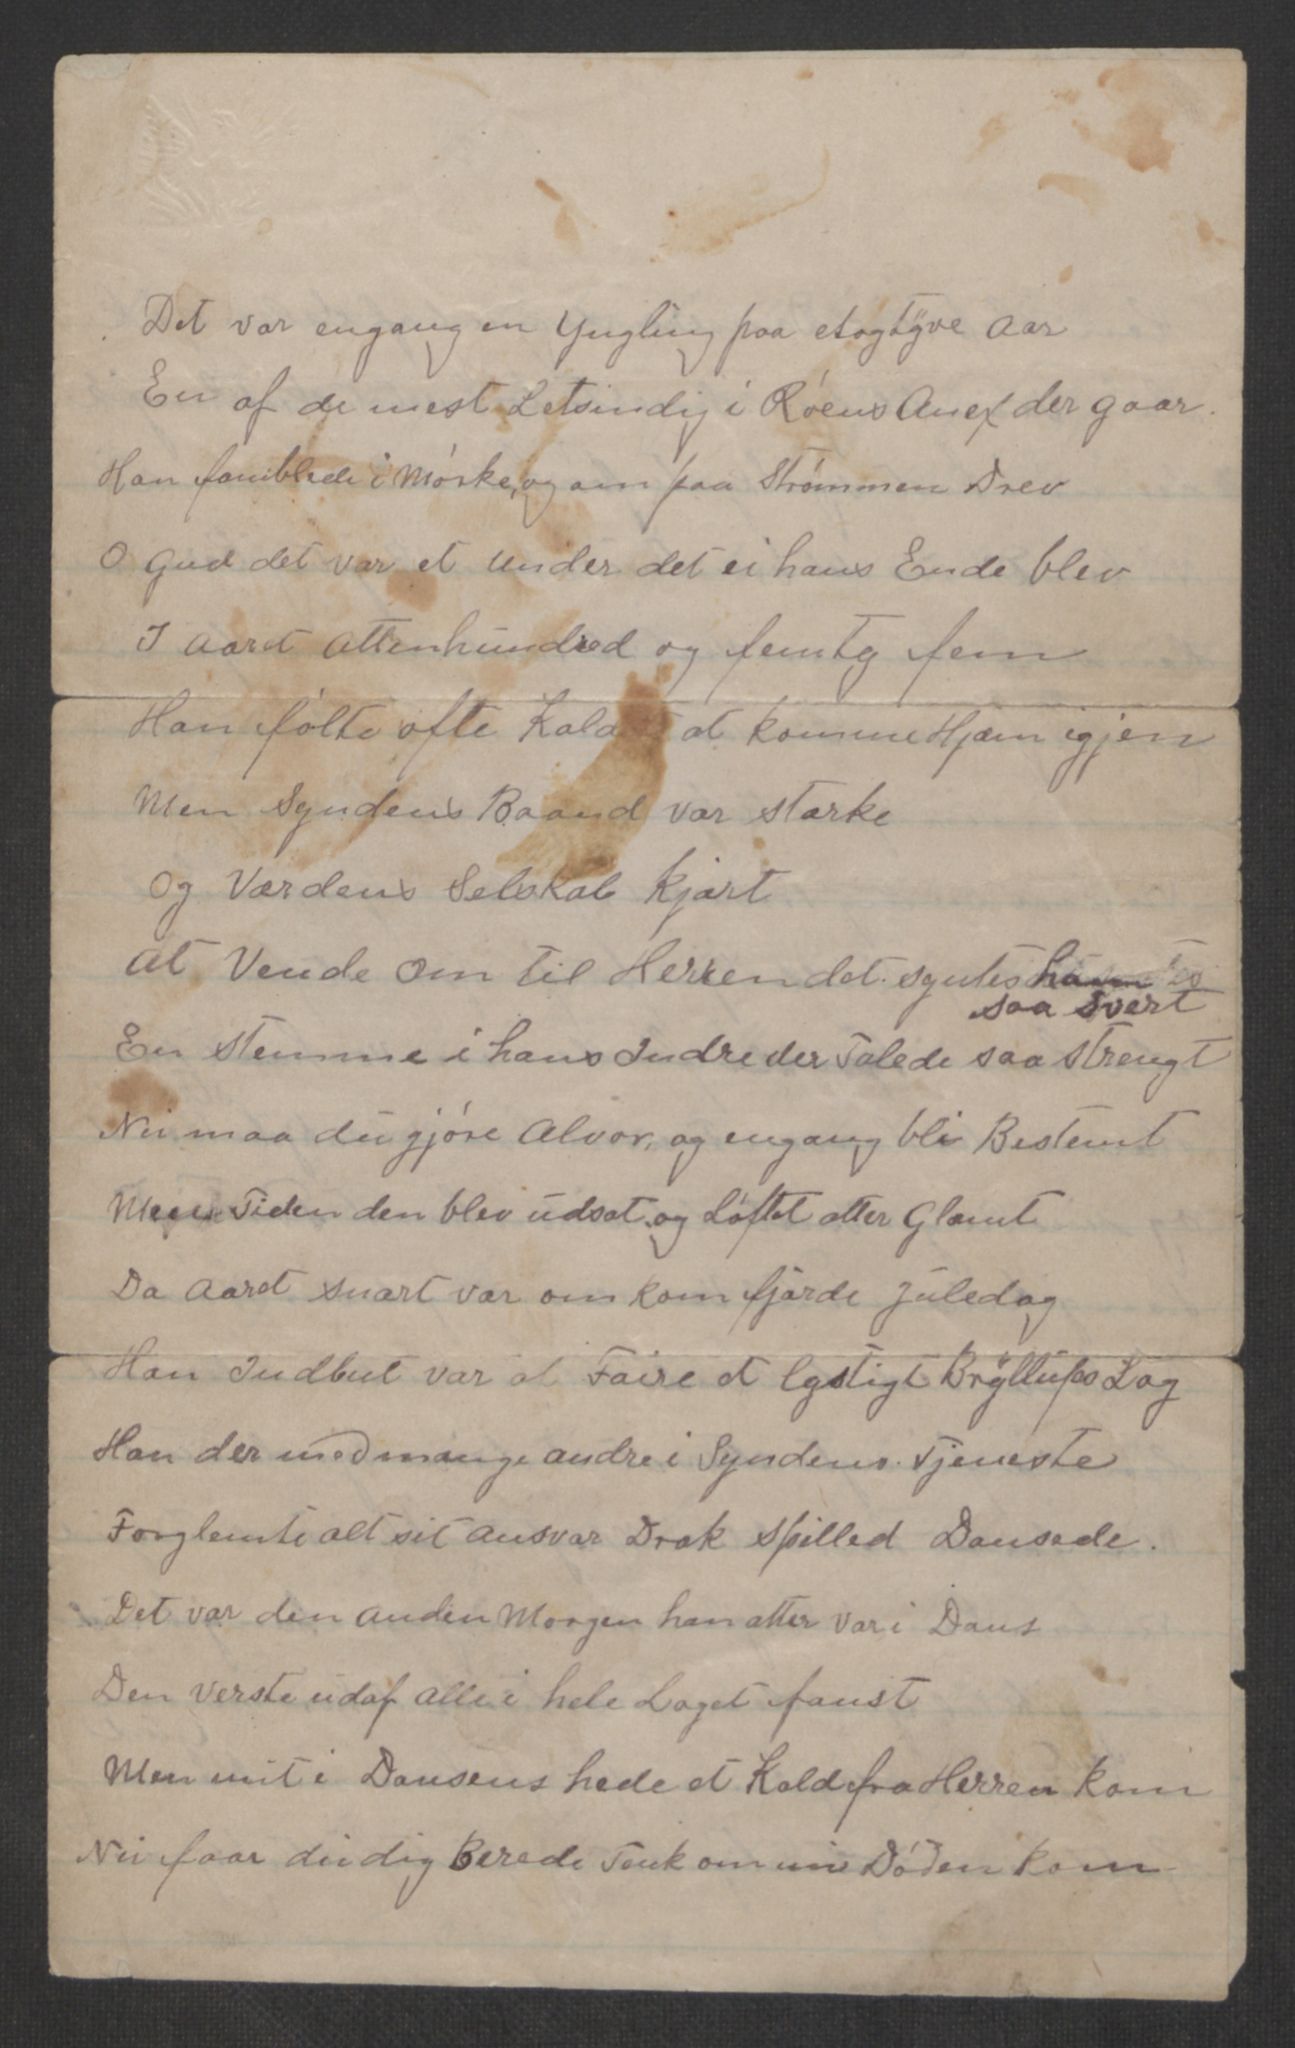 Det var engang en Yngling paa etogtyve Aar
En af de mest Letsindig i Röens Anex der gaar.
Han famblede i Mørke, og om paa Strømmen Drev
O Gud det var et Under det ei hans Ende blev
I Aaret Attenhundred og femtg fem
Han følte ofte Kaldet at komme Hjem igjen
Men Syndens Baand var stærke
Og Værdens Selskab kjært
At Vende Om til Herren det syntes ham
saa Svert
En Stemme i hans Indre der Talede saa Strengt
Nu maa du gjöre Alvor, og engang bli Bestemt
Men Tiden den blev udsat og Löftet atter Glæmt
Da Aaret snart var om kom fjärde Juledag
Han Indbut var at Faire et lystigt Bryllups Lag
Han der med mange andre i Syndens Tjeneste
Forglemte alt sit Ansvar Drak Spilled Dansede.
Det var den Anden Morgen han atter var i Dans
Den Verste udaf Alle i hele Laget fanst
Men mit i Dansens hede et Kald fra Herren kom
Nu faar du dig Berede Tenk om nu Döden kom